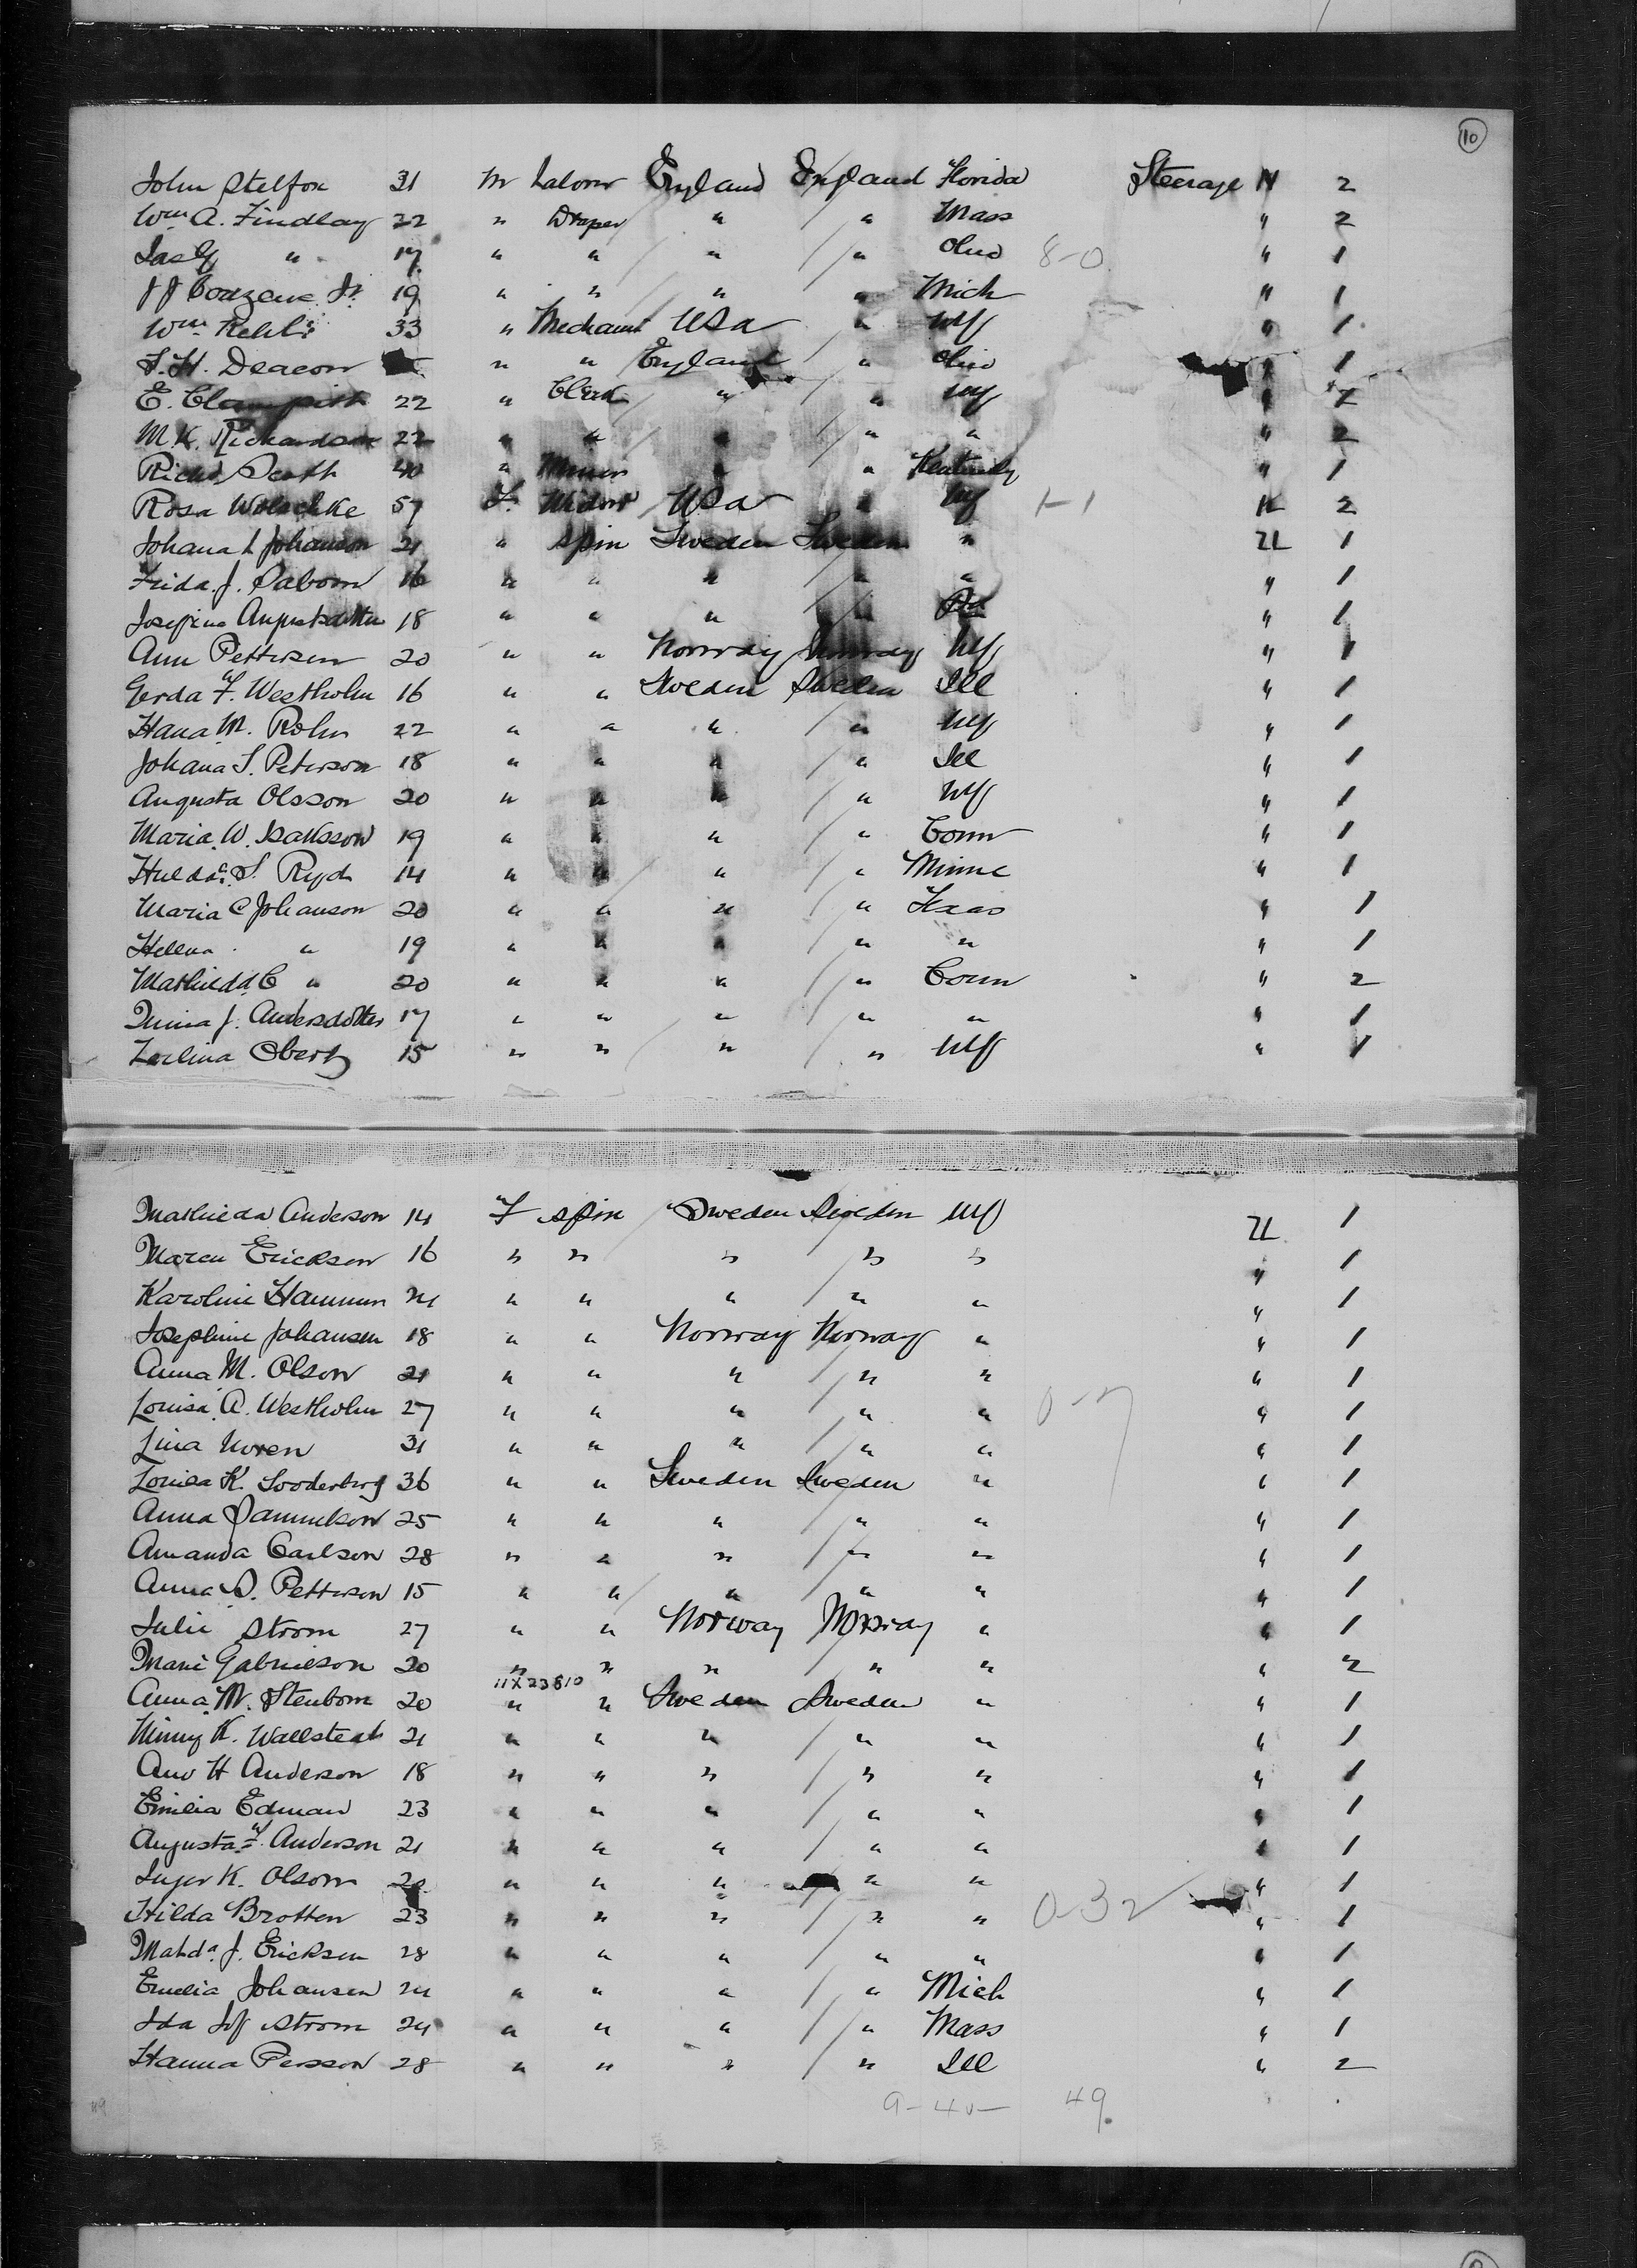 10
John Stelfox 31 M Labour England England Florida Steerage N 2
Wm A. Findlay 22 " Draper " " Mass " 2
Jas G " 17 " " " " Ohio 8-0 " 1
J J Couzens Jr 19 " " " " Mich " 1
Wm Rehlis 33 " Mechanic USA " NY " 1
S. H. Deacon " " England " Ohio " 1
E. Clampitt 22 " Clerk " " NY " 2
M. K. Richardson 22 " " " " " " 2
Richd Scott 40 " Miner " " Kentucky " 1
Rosa Wolschke 57 F. Widow USA " NY 1-1 K 2
Johana L Johanson 21 " Spin Sweden Sweden " ZL 1
Frida. J. Sabom 16 " " " " " " 1
Josefina Augustsdotter 18 " " " " Pa " 1
Ann Petterson 20 " " Norway Norway NY " 1
Gerda F. Westholm 16 " " Sweden Sweden Ill " 1
Hana M. Rohn 22 " " " " NY " 1
Johana S. Peterson 18 " " " " Ill " 1
Augusta Olsson 20 " " " " NY " 1
Maria. W. Isaksson 19 " " " " Conn " 1
Hulda. S. Ryd 14 " " " " Minne " 1
Maria C Johanson 20 " " " " Texas " 1
Hellna " 19 " " " " " " 1
Mathilda C " 20 " " " " Conn " 2
Inina J. Andersdotter 17 " " " " " " 1
Karlina Oberg 15 " " " " NY " 1
Mathieda Anderson 14 F Spin Sweden Sweden NY ZL 1
Maren Erickson 16 " " " " " " 1
Karoline Hammun 24 " " " " " " 1
Josephine Johansen 18 " " Norway Norway " " 1
Anna M. Olson 21 " " " " " " 1
Louisa. A. Westholm 27 " " " " " 0-7 " 1
Lina Noren 31 " " " " " " 1
Louisa K. Sooderberg 36 " " Sweden Sweden " " 1
Anna Samuelson 25 " " " " " " 1
Amanda Carlson 28 " " " " " " 1
Anna S. Petterson 15 " " " " " " 1
Julie Strom 27 " " Norway Norway " " 1
Marie Gabrielson 20 " " " " " " 2
11X23810
Anna. M. Stenbom 20 " " Sweden Sweden " " 1
Minny K. Wallstedt 21 " " " " " " 1
Ann H Anderson 18 " " " " " " 1
Emilia Edman 23 " " " " " " 1
Augusta F. Anderson 21 " " " " " " 1
Inger K. Olsom 20 " " " " " " 1
Hilda Brotten 23 " " " " " 0-32 " 1
Matda. J. Ericksen 28 " " " " " " 1
Emelia Johansen 24 " " " " Mich " 1
Ida Lof strom 24 " " " " Mass " 1
Hanna Persson 28 " " " " Ill " 2
9-40 49